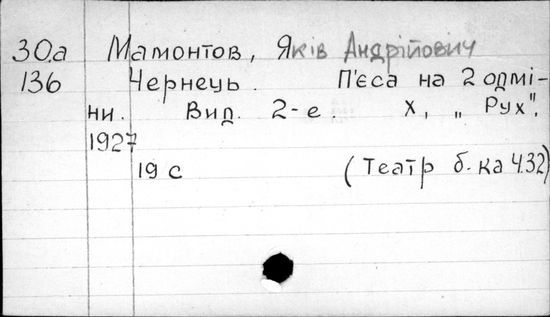 30.а Мамонтов, Яків Андрійович
136 Чернець. П'єса на 2 одмі-
ни. Вид. 2-е. Х, „Рух",
1927
19 с (Театр б.ка Ч.32)